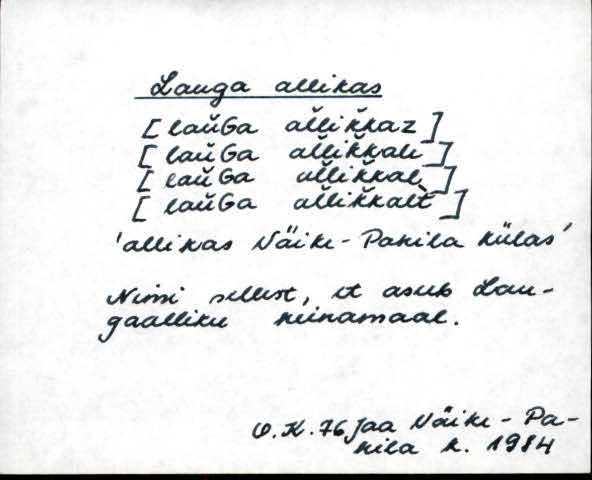 Lauga allikas
[lau̬Ga al̆likkaz]
[lau̬Ga al̆likkale]
[lau̬Ga al̆likkal]
[lau̬Ga al̆likkalt]
'allikas Väike-Pahila külas'
Nimi sellest, et asub Lau-
gaalliku heinamaal.
O.K. 76 Jaa Väike-Pa-
hila k. 1984